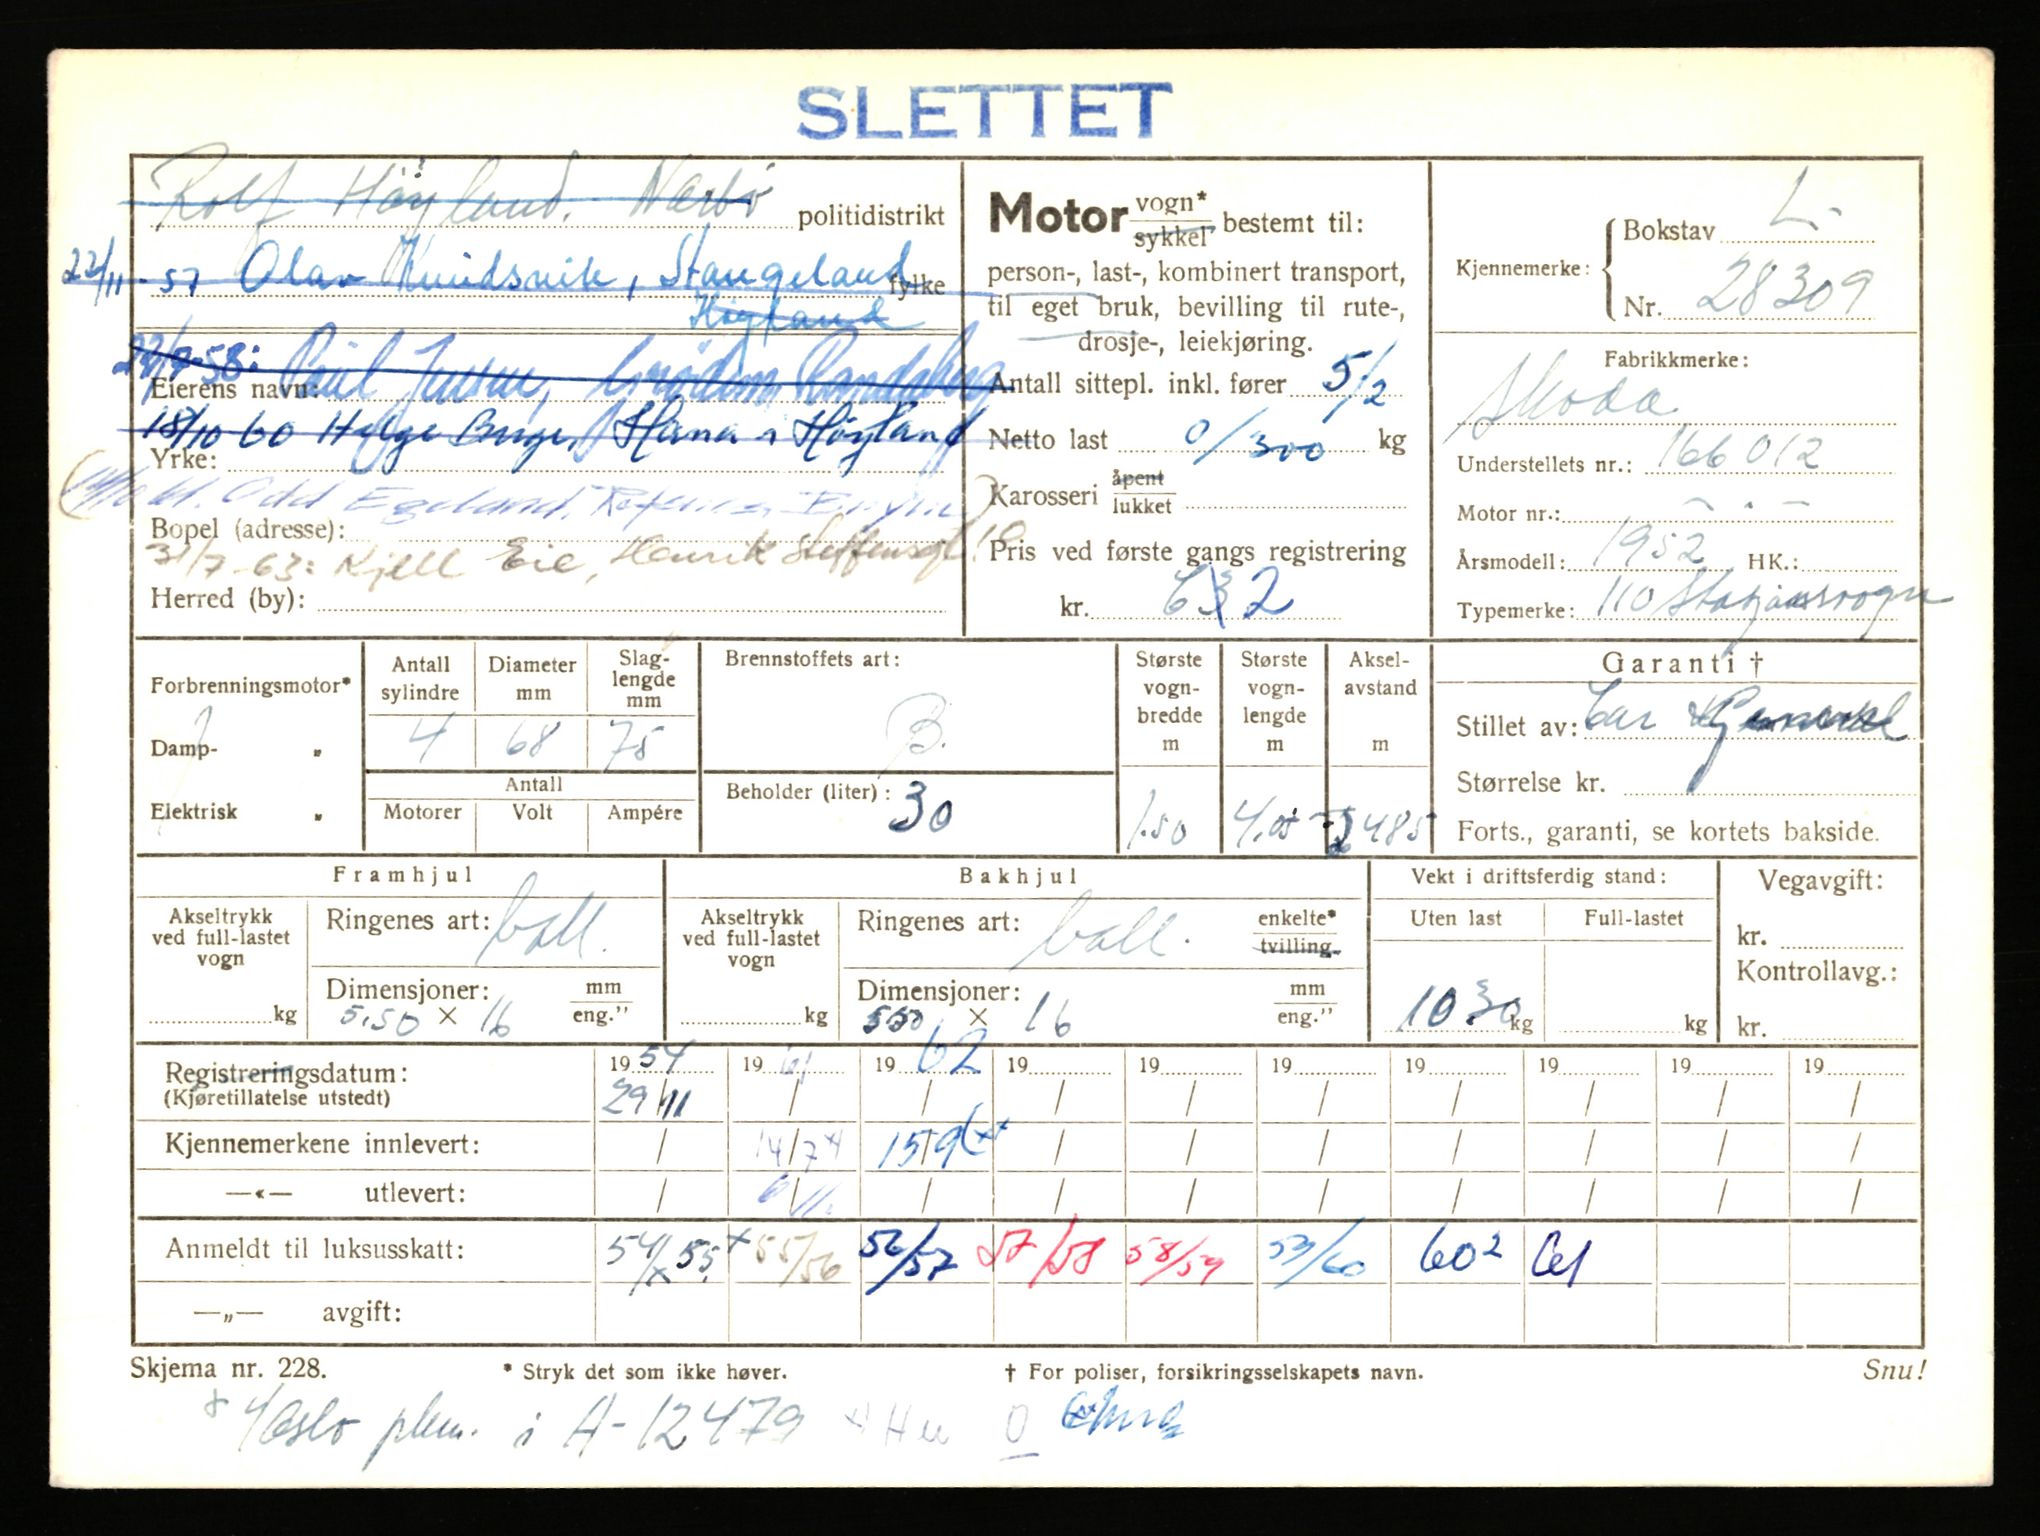 SLETTET
Rolf Høyland. Nærbø politidistrikt
22/11-57 Olav Knudsvik, Stangeland fylke
Høyland
Eierens navn:
18/10 60 Helge Berge, Hana i Høyland
Yrke:
Odd Egeland,
Bopel (adresse):
31/7-63: Kjell Eie, Henrik Steffensgt. 10
Herred (by):
Motor vogn* sykkel bestemt til:
person-, last-, kombinert transport,
til eget bruk, bevilling til rute-,
drosje-, leiekjøring.
Antall sittepl. inkl. fører 5/2
Netto last 0/300 kg
Karosseri åpent lukket
Pris ved første gangs registrering
kr.
Kjennemerke: Bokstav L.
Nr. 28309
Fabrikkmerke:
Skoda
Understellets nr.: 166012
Motor nr.: - . -
Årsmodell: 1952 HK.:
Typemerke: 110 Stasjonsvogn
Forbrenningsmotor*
Damp- „
Elektrisk „
Antall sylindre 4
Diameter mm 68
Slaglengde mm 75
Antall
Motorer Volt Ampére
Brennstoffets art: B.
Beholder (liter): 30
Største vognbredde m 1.50
Største vognlengde m 4.05
Akselavstand m 2485
Garanti †
Stillet av:
Størrelse kr.
Forts., garanti, se kortets bakside.
Framhjul
Akseltrykk ved full-lastet vogn kg
Ringenes art: ball.
Dimensjoner: mm eng."
5.50 × 16
Bakhjul
Akseltrykk ved full-lastet vogn kg
Ringenes art: ball. enkelte* tvilling.
Dimensjoner: mm eng."
550 × 16
Vekt i driftsferdig stand:
Uten last Full-lastet
1030 kg kg
Vegavgift:
kr.
Kontrollavg.:
kr.
Registreringsdatum: 1954 1961 1962 19 19 19 19 19 19 19
(Kjøretillatelse utstedt) 29/11 / / / / / / / / /
Kjennemerkene innlevert: / 14/7 x) 15/9 xx / / / / / / /
—«— utlevert: / 6/11. / / / / / / / /
Anmeldt til luksusskatt: 54/55 55/56 56/57 57/58 58/59 59/60 60² 61
—„— avgift:
Skjema nr. 228. * Stryk det som ikke høver. † For poliser, forsikringsselskapets navn. Snu!
i A-12479